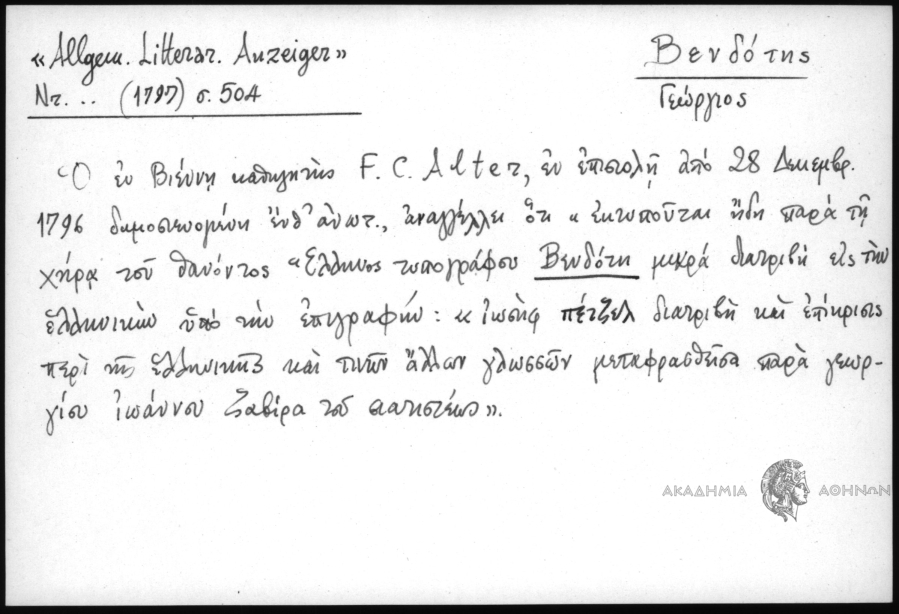 «Allgem. Litterar. Anzeiger»
Βενδότης
Nr. .. (1797) σ. 504
Γεώργιος
Ὁ ἐν Βιέννῃ καθηγητὴς F. C. Alter, ἐν ἐπιστολῇ ἀπὸ 28 Δεκεμβρ.
1796 δημοσιευομένῃ ἐνθ' ἀνωτ., ἀναγγέλλει ὅτι «ἐκτυποῦται ἤδη παρὰ τῇ
χήρᾳ τοῦ θανόντος Ἕλληνος τυπογράφου Βενδότη μικρὰ διατριβὴ εἰς τὴν
ἑλληνικὴν ὑπὸ τὴν ἐπιγραφήν: «ἰωσὴφ πέτζελ διατριβὴ καὶ ἐπίκρισις
περὶ τῆς ἑλληνικῆς καὶ τινῶν ἄλλων γλωσσῶν μεταφρασθεῖσα παρὰ γεωρ-
γίου ἰωάννου ζαβίρα τοῦ σιατιστέως».
ΑΚΑΔΗΜΙΑ ΑΘΗΝΩΝ